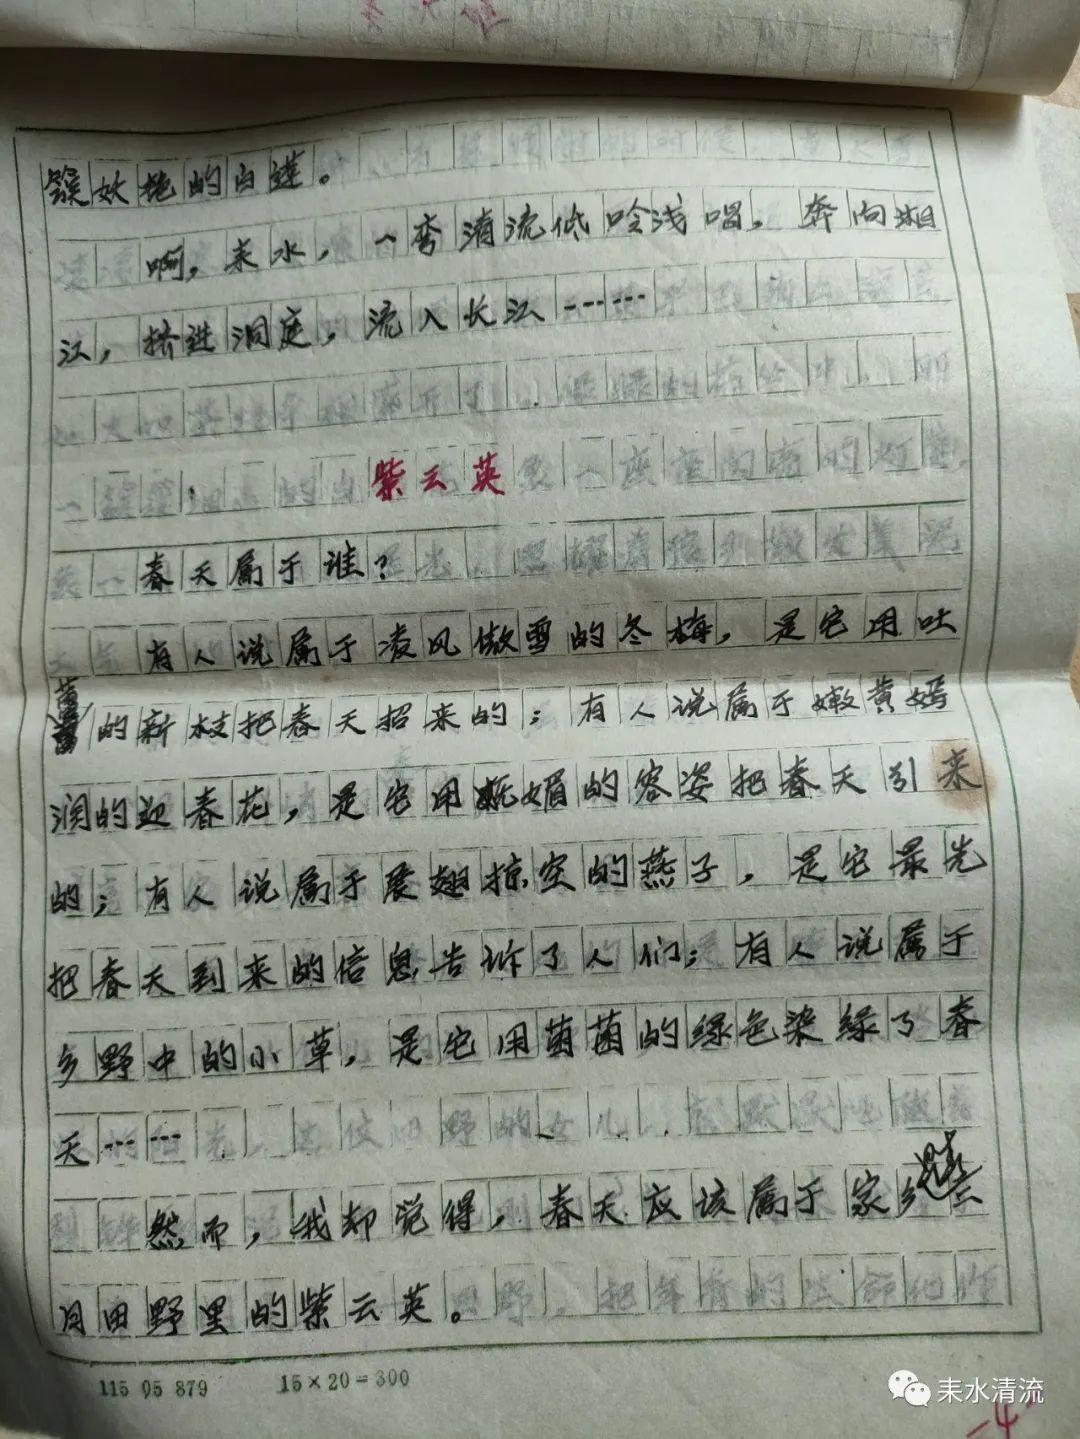 簇妖艳的白莲。
啊，耒水，一弯清流低吟浅唱，奔向湘
江，挤进洞庭，流入长江……
紫云英
春天属于谁？
有人说属于凌风傲雪的冬梅，是它用吐
的新枝把春天招来的；有人说属于嫩黄嫣
润的迎春花，是它用妩媚的容姿把春天引来
的；有人说属于展翅掠空的燕子，是它最先
把春天到来的信息告诉了人们；有人说属于
乡野中的小草，是它用茵茵的绿色染绿了春
天……
然而，我却觉得，春天应该属于家乡二
月田野里的紫云英。
115 05 879 15×20=300
耒水清流
-4-